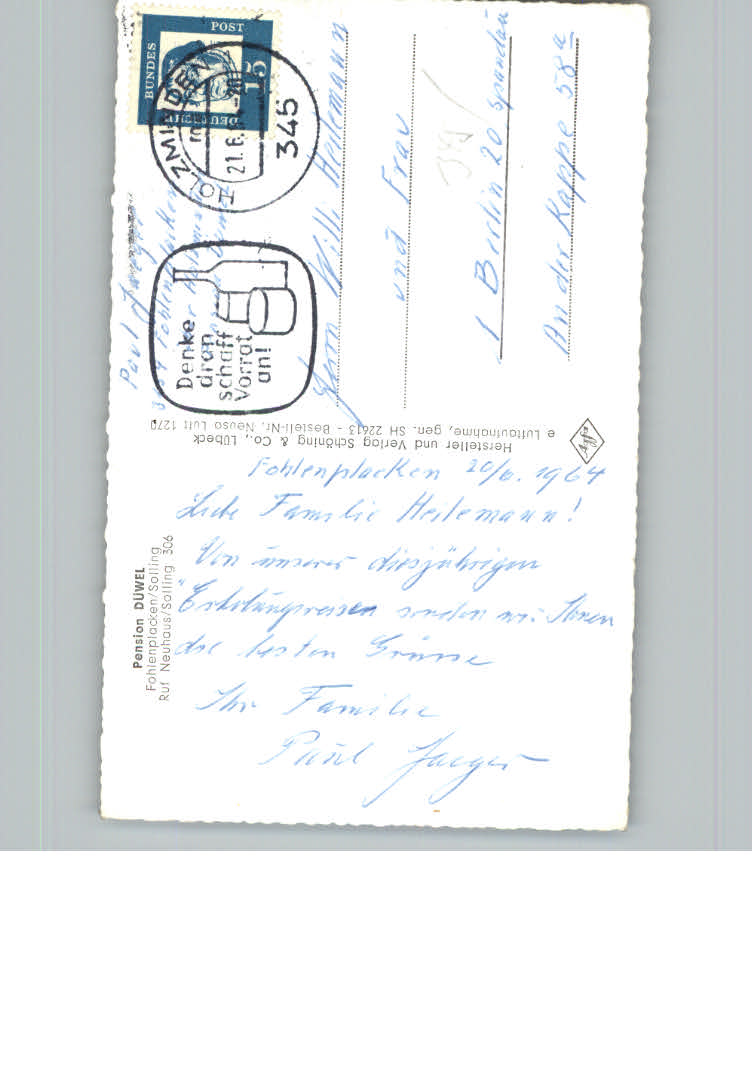 Pension DÜWEL
Fohlenplacken/Solling
Ruf Neuhaus/Solling 306
Fohlenplacken 20/6. 1964
Liebe Familie Heilemann!
Von unserer diesjährigen
"Erholungsreisen senden wir Ihnen
die besten Grüsse
Ihr Familie
Paul Jaeger
Hersteller und Verlag Schöning & Co., Lübeck
e Luftaufnahme, gen. SH 22613 - Bestell-Nr. Neuso Luft 1270
Agfa
Paul Jaeger
Fohlenplacken
DEUTSCHE
BUNDES
POST
15
HOLZMINDEN
21.6.
345
Denke
dran
schaff
Vorrat
an!
Herrn Willi Heilemann
und Frau
1 Berlin 20 Spandau
An der Kappe 58a